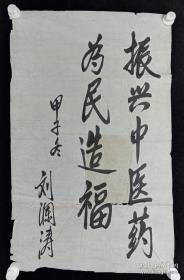 振兴中医药
为民造福
甲子冬
刘澜涛